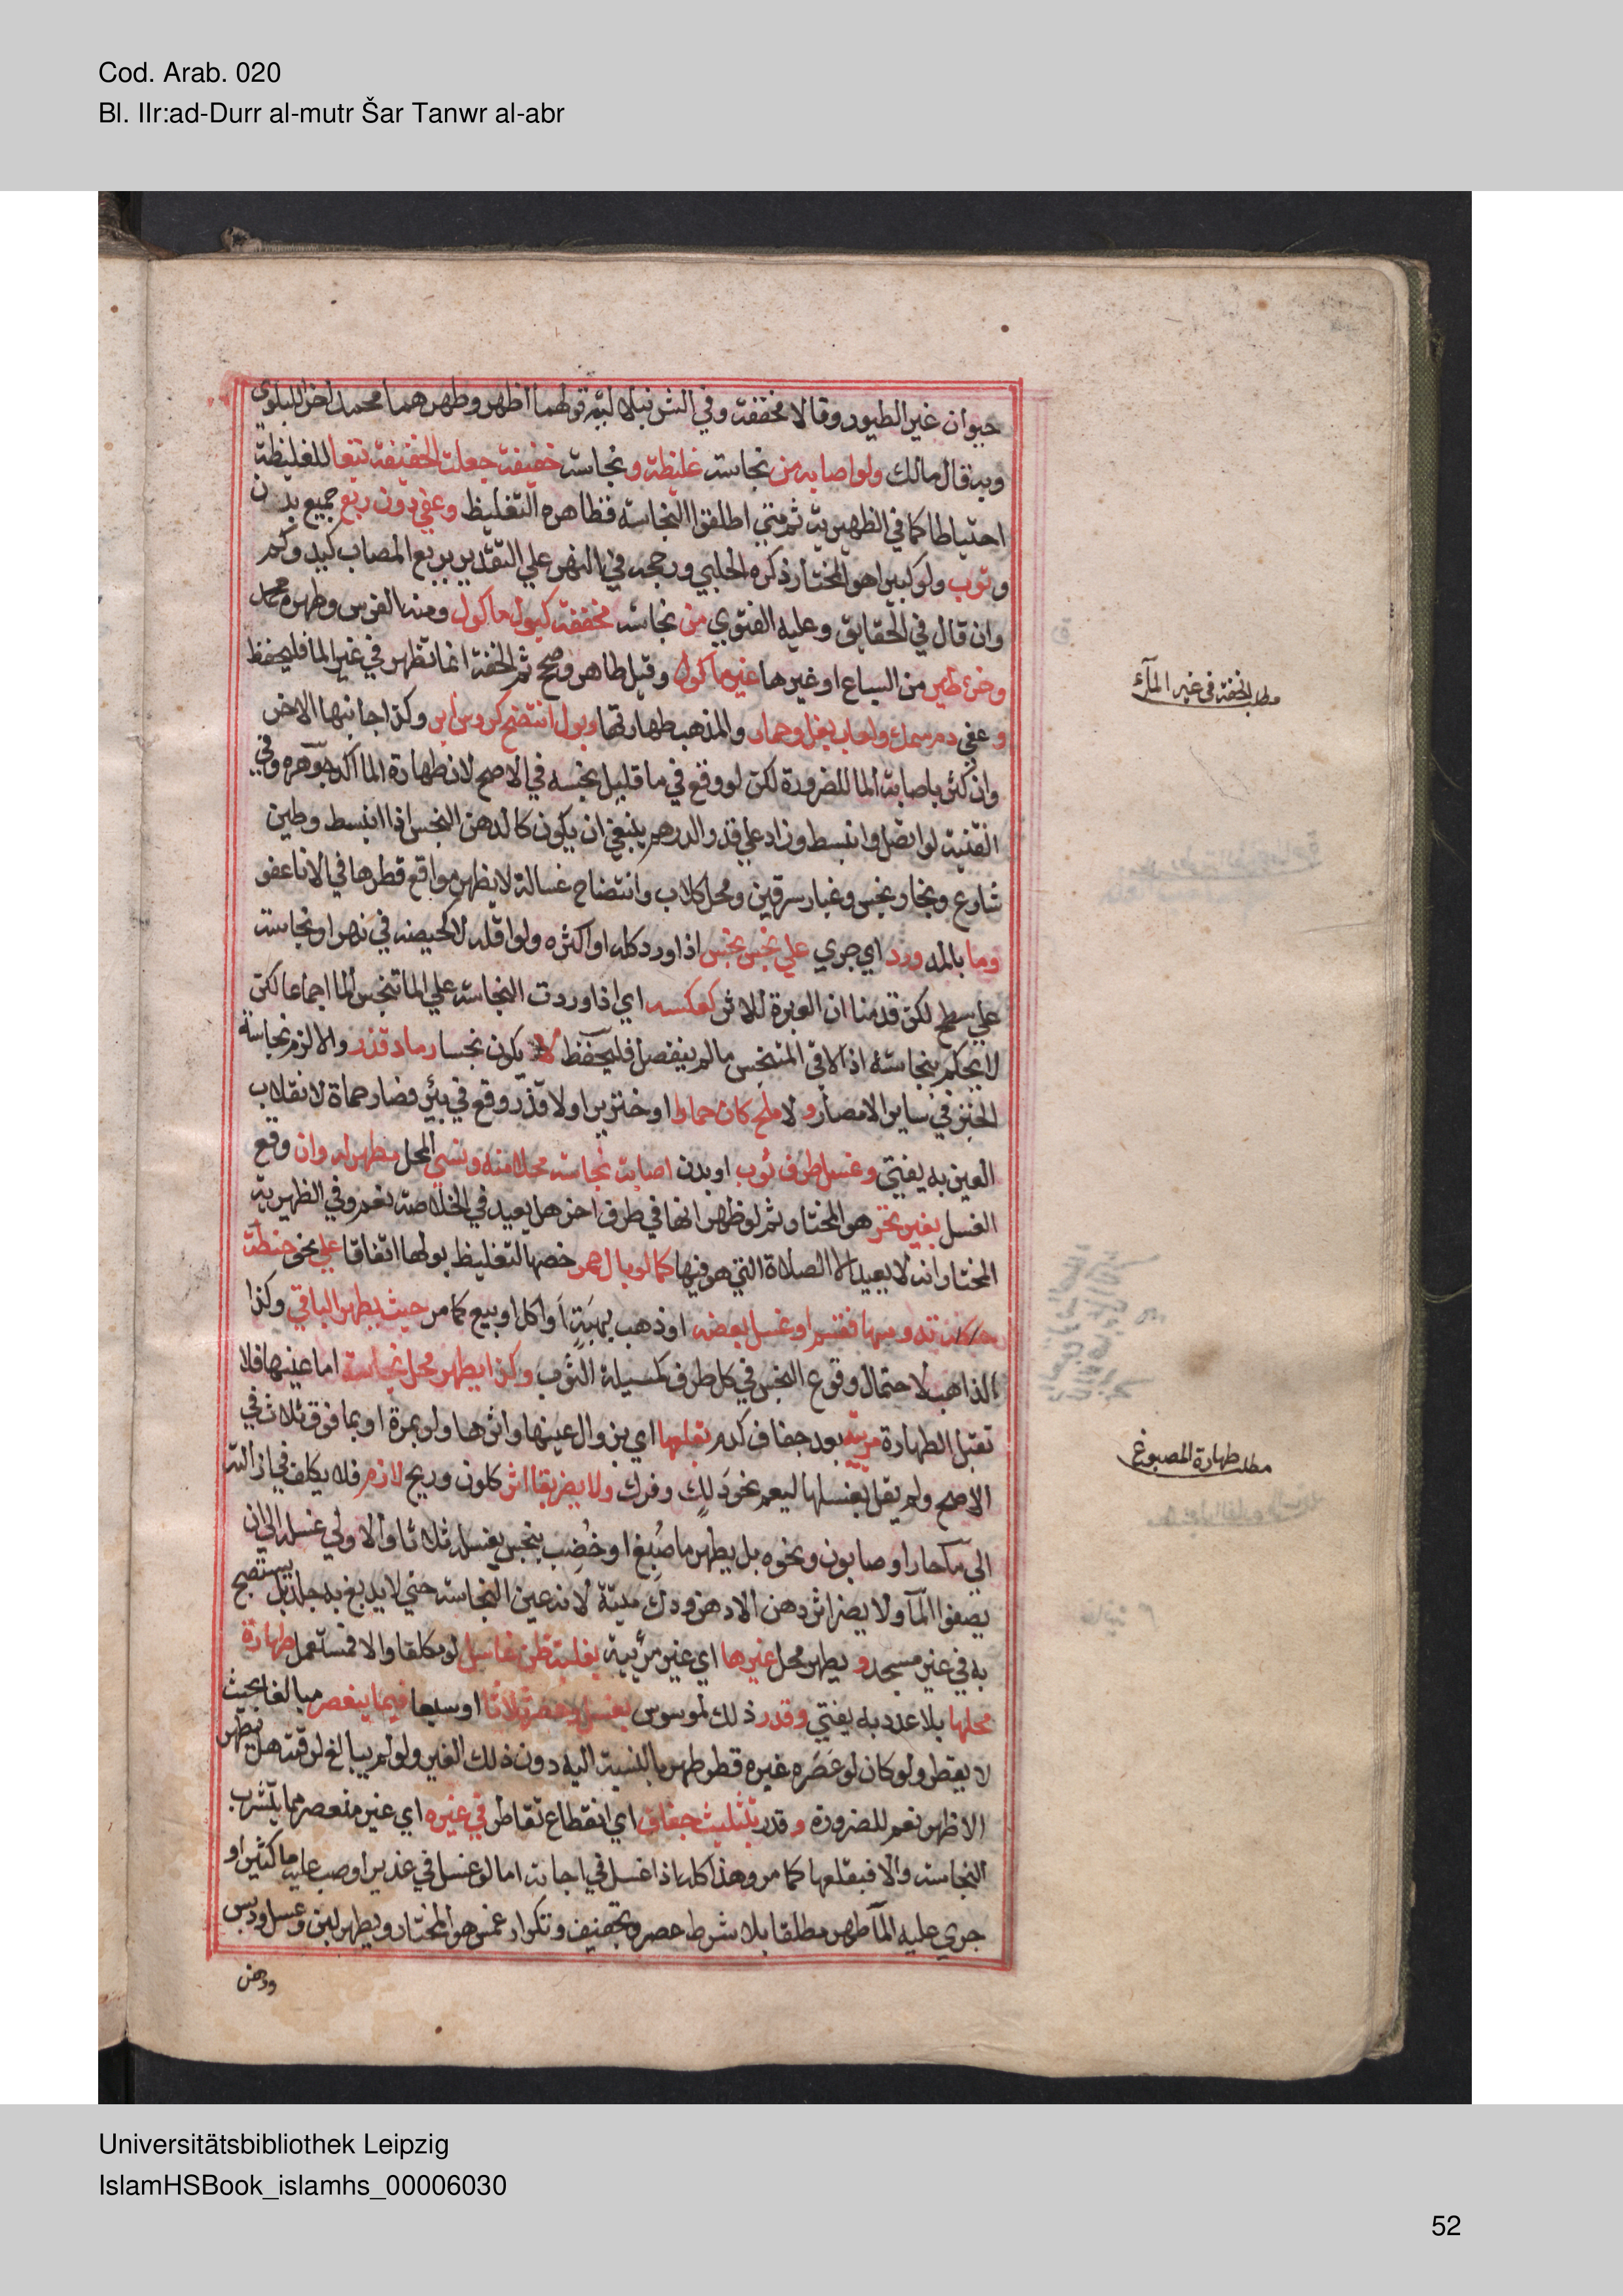 Cod. Arab. 020
Bl. IIr:ad-Durr al-mutr Šar Tanwr al-abr
حيوان غير الطيور وقالا مخففة وفي الشرنبلالية قولهما اظهر وطهرهما محمد اخرا للبلوي
وبه قال مالك ولو اصابه من نجاسة غليظة و نجاسة خفيفة جعلت الخفيفة تبعا للغليظة
احتياطا كما في الظهيرية ثم متي اطلقوا النجاسة فظاهره التغليظ وعفي دون ربع جميع بدن
و ثوب ولو كبيرا هو المختار ذكره الحلبي ورجحه في النهر علي التقدير بربع المصاب كيد وكم
وان قال في الحقايق وعليه الفتوي من نجاسة مخففة كبول ماكول ومنه الفرس وطهره محمد
وخرئ طير من السباع او غيرها غير ماكول وقيل طاهر وصحح ثم الخفة انما تظهر في غير الما فليحفظ
و عفي دم سمك ولعاب بغل وحمار والمذهب طهارتها وبول انتضح كروس ابر وكذا جانبها الاخر
وان كثر باصابة الما للضرورة لكن لو وقع في ما قليل نجسه في الاصح لان طهارة الما اكد جوهره وفي
القنية لو اتصل وانبسط وزاد علي قدر الدرهم ينبغي ان يكون كالدهن النجس اذا انبسط وطين
شارع وبخار نجس وغبار سرقين ومحل كلاب وانتضاح غسالة لا يظهر مواقع قطرها في الانا عفو
وما بالمد ورد اي جري علي نجس نجس اذا ورد كله او اكثره ولو اقله لا كجيفة في نهر او نجاسة
علي سطح لكن قدمنا ان العبرة للاثر كعكسه اي اذا وردت النجاسة علي الما تنجس الما اجماعا لكن
لا يحكم بنجاسته اذا لاقي المتنجس ما لم ينفصل فليحفظ لا يكون نجسا رماد قذر والا لزم نجاسة
الخبز في ساير الامصار و لا ملح كان حمارا او خنزيرا ولا قذر وقع في بئر فصار حماة لانقلاب
العين به يفتي وغسل طرف ثوب او بدن اصابت نجاسة محلا منه ونسي المحل مطهر له وان وقع
الغسل بغير تحر هو المختار ثم لو ظهر انها في طرف اخر هل يعيد في الخلاصة نعم وفي الظهيرية
المختار انه لا يعيد الا الصلاة التي هو فيها كما لو بال حمر خصها لتغليظ بولها اتفاقا علي نحو حنطة
تدوسها فقسم او غسل بعضه او ذهب بهبة او اكل او بيع كما مر حيث يطهر الباقي وكذا
الذاهب لاحتمال وقوع النجس في كل طرف كمسيلة الثوب وكذا يطهر محل نجاسة اما عينها فلا
تقبل الطهارة مرئية بعد جفاف كدم بقلعها اي بزوال عينها واثرها ولو بمرة او بما فوق ثلاث في
الاصح ولم يقل بغسلها ليعم نحو دلك وفرك ولا يضر بقا اثر كلون وريح لازم فلا يكلف في ازالته
الي ما حار او صابون ونحوه بل يطهر ما صُبغ او خُضب بنجس بغسله ثلاثا والاولي غسله الي ان
يصفوا المآ ولا يضر اثر دهن الا دهن ودك ميتة لانه عين النجاسة حتي لا يدبغ به جلد بل يستصبح
به في غير مسجد و يطهر محل غيرها اي غير مرئية بغلبة ظن غاسل لو مكلفا والا فمستعمل طهارة
محلها بلا عدد به يفتي وقدر ذلك لموسوس بغسل وعصر ثلاثا او سبعا فيما ينعصر مبالغا بحيث
لا يقطر ولو كان لو عَصَره غيره قطر طهر بالنسبة اليه دون ذلك الغير ولو لم يبالغ لرقته هل يطهر
الاظهر نعم للضرورة و قدر بتثليث جفاف اي انقطاع تقاطر في غيره اي غير منعصر مما يتشرب
النجاسة والا فبقلعها كما مر وهذا كله اذا غسل في اجانة اما لو غسل في غدير او صب عليه ما كثير او
جري عليه المآ طهر مطلقا بلا شرط عصر وتجفيف وتكرار غمس هو المختار ويطهر لبن وعسل ودبس
ودهن
مطلب الخفة في غير المآء
مطلب طهارة المصبوغ
Universitätsbibliothek Leipzig
IslamHSBook_islamhs_00006030
52